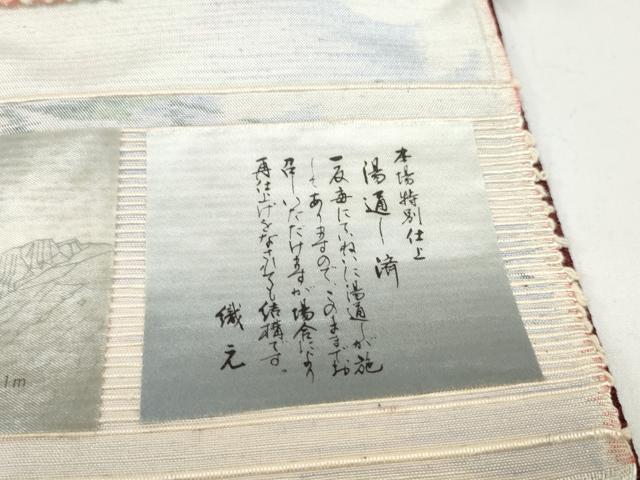 本場特別仕上
湯通し済
一反毎にていねいに湯通しが施
してありますので、このままでお
召しいただけますが場合により
再仕上げをなされても結構です。
織元
1m